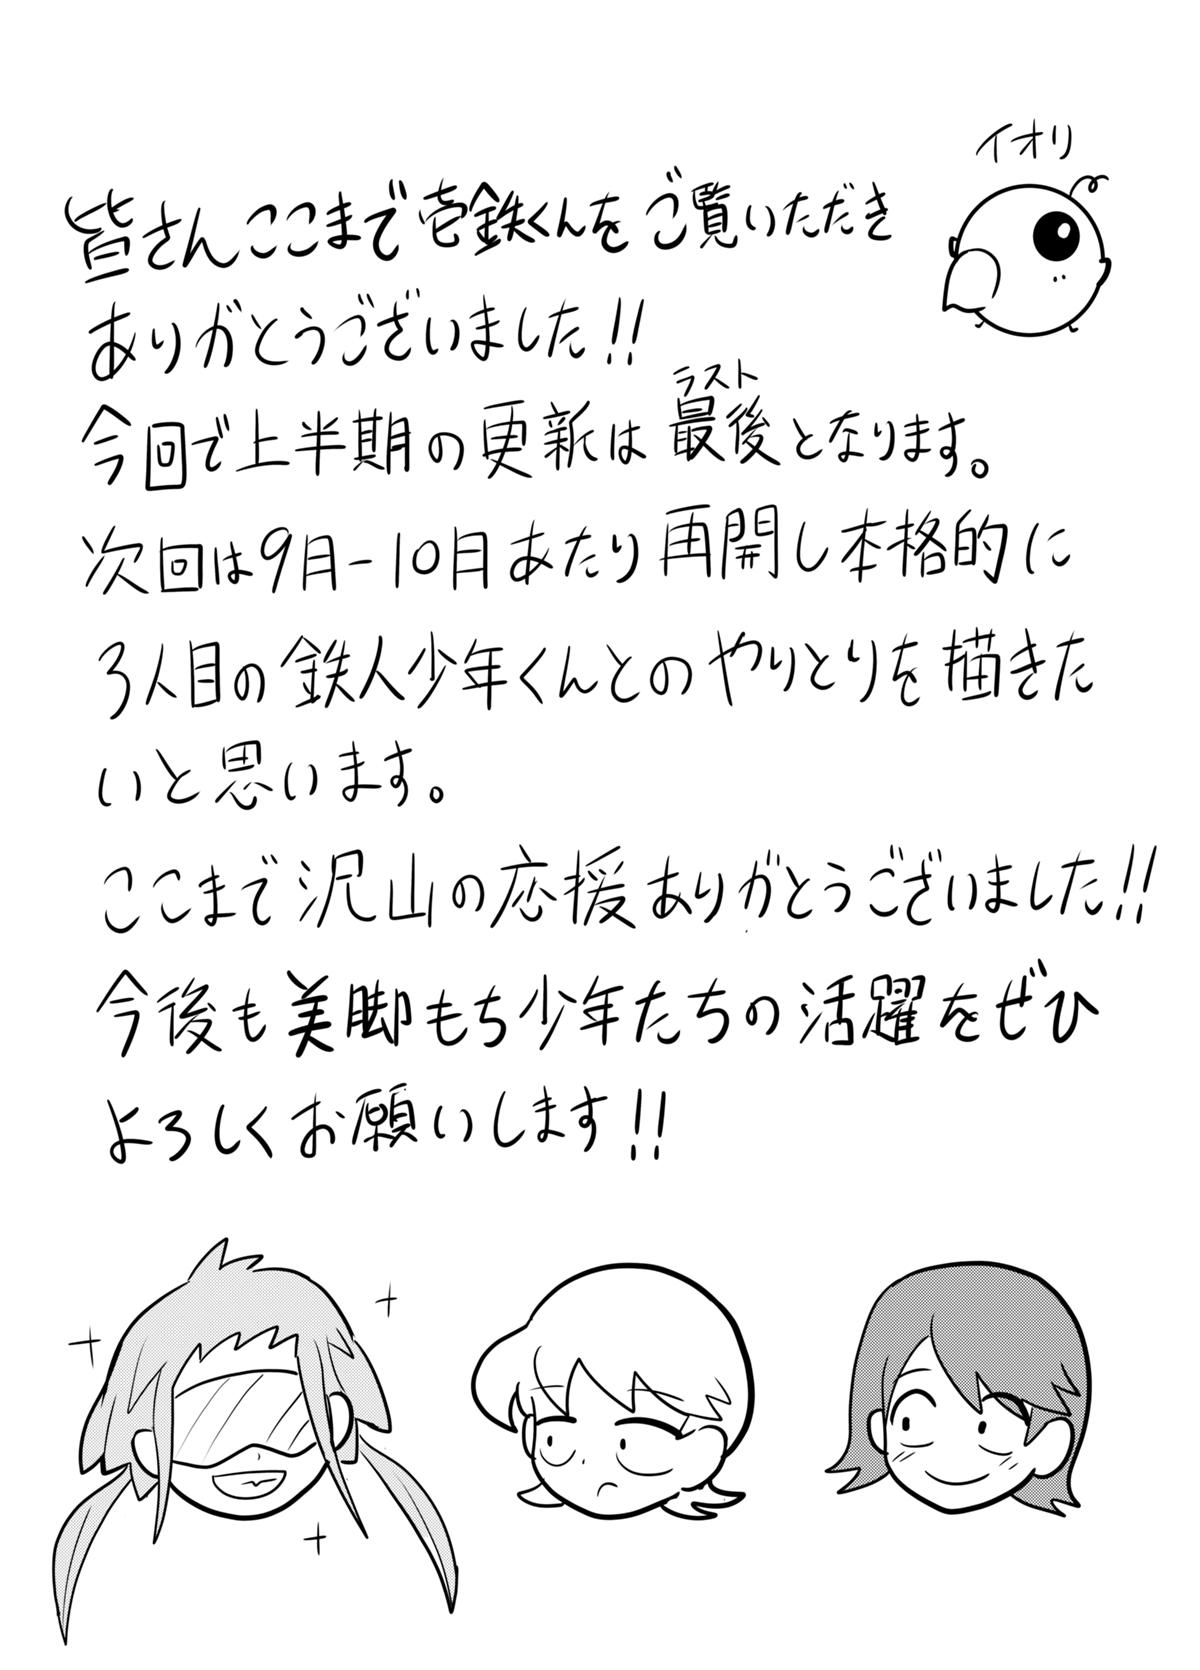 イオリ
皆さんここまで壱鉄くんをご覧いただき
ありがとうございました!!
ラスト
今回で上半期の更新は最後となります。
次回は9月-10月あたり再開し本格的に
3人目の鉄人少年くんとのやりとりを描きた
いと思います。
ここまで沢山の応援ありがとうございました!!
今後も美脚もち少年たちの活躍をぜひ
よろしくお願いします!!